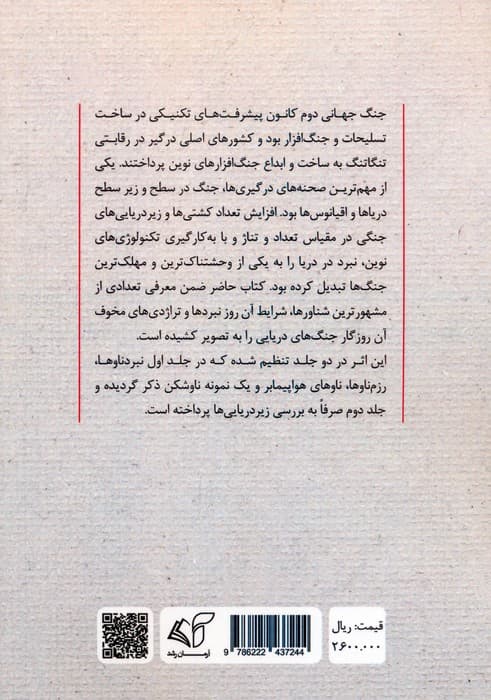 جنگ جهانی دوم کانون پیشرفت‌های تکنیکی در ساخت
تسلیحات و جنگ‌افزار بود و کشورهای اصلی درگیر در رقابتی
تنگاتنگ به ساخت و ابداع جنگ‌افزارهای نوین پرداختند. یکی
از مهم‌ترین صحنه‌های درگیری‌ها، جنگ در سطح و زیر سطح
دریاها و اقیانوس‌ها بود. افزایش تعداد کشتی‌ها و زیردریایی‌های
جنگی در مقیاس تعداد و تناژ و با به‌کارگیری تکنولوژی‌های
نوین، نبرد در دریا را به یکی از وحشتناک‌ترین و مهلک‌ترین
جنگ‌ها تبدیل کرده بود. کتاب حاضر ضمن معرفی تعدادی از
مشهورترین شناورها، شرایط آن روز نبردها و تراژدی‌های مخوف
آن روزگار جنگ‌های دریایی را به تصویر کشیده است.
این اثر در دو جلد تنظیم شده که در جلد اول نبردناوها،
رزم‌ناوها، ناوهای هواپیمابر و یک نمونه ناوشکن ذکر گردیده و
جلد دوم صرفاً به بررسی زیردریایی‌ها پرداخته است.
قیمت: ریال
۲۶۰۰.۰۰۰
9 786222 437244
آرمان رشد